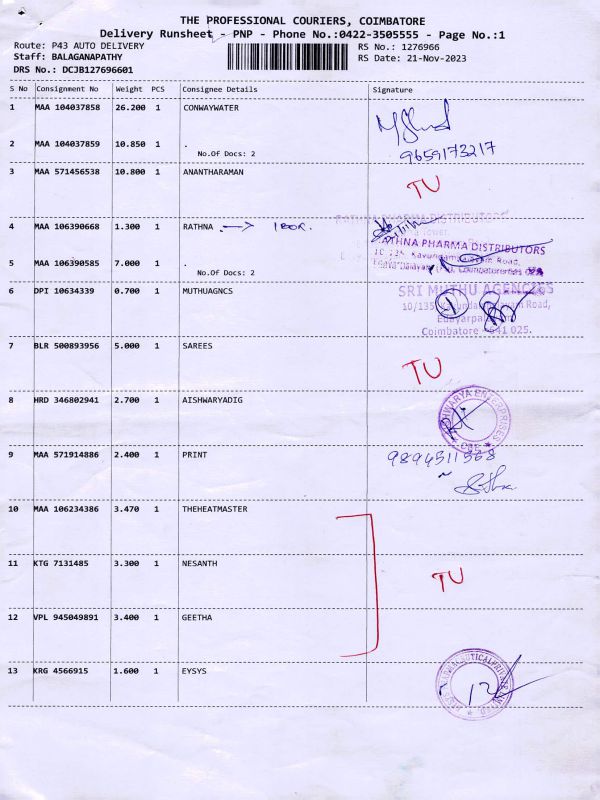 THE PROFESSIONAL COURIERS, COIMBATORE
Delivery Runsheet - PNP - Phone No.:0422-3505555 - Page No.:1
Route: P43 AUTO DELIVERY RS No.: 1276966
Staff: BALAGANAPATHY RS Date: 21-Nov-2023
DRS No.: DCJB127696601
S No Consignment No Weight PCS Consignee Details Signature
1 MAA 104037858 26.200 1 CONWAYWATER
2 MAA 104037859 10.850 1 .
No.Of Docs: 2 9659173217
3 MAA 571456538 10.800 1 ANANTHARAMAN TU
4 MAA 106390668 1.300 1 RATHNA
RATHNA PHARMA DISTRIBUTORS
5 MAA 106390585 7.000 1 .
No.Of Docs: 2
6 DPI 10634339 0.700 1 MUTHUAGNCS SRI MUTHU AGENCIES
Coimbatore - 641 025.
7 BLR 500893956 5.000 1 SAREES TU
8 HRD 346802941 2.700 1 AISHWARYADIG
9 MAA 571914886 2.400 1 PRINT 9894511568
10 MAA 106234386 3.470 1 THEHEATMASTER
11 KTG 7131485 3.300 1 NESANTH TU
12 VPL 945049891 3.400 1 GEETHA
13 KRG 4566915 1.600 1 EYSYS